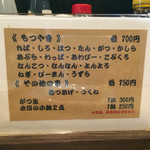 《 もつやき 》 各 700円
れば・しろ・はつ・たん・がつ・かしら
あぶら・わっぱ・あわびー・こぶくろ
なんこつ・なんなん・よんとろ
ねぎ・ぴーまん・うずら
《 その他の串 》 各 750円
あつあげ・つくね
がつ生 1皿 300円
1皿 250円